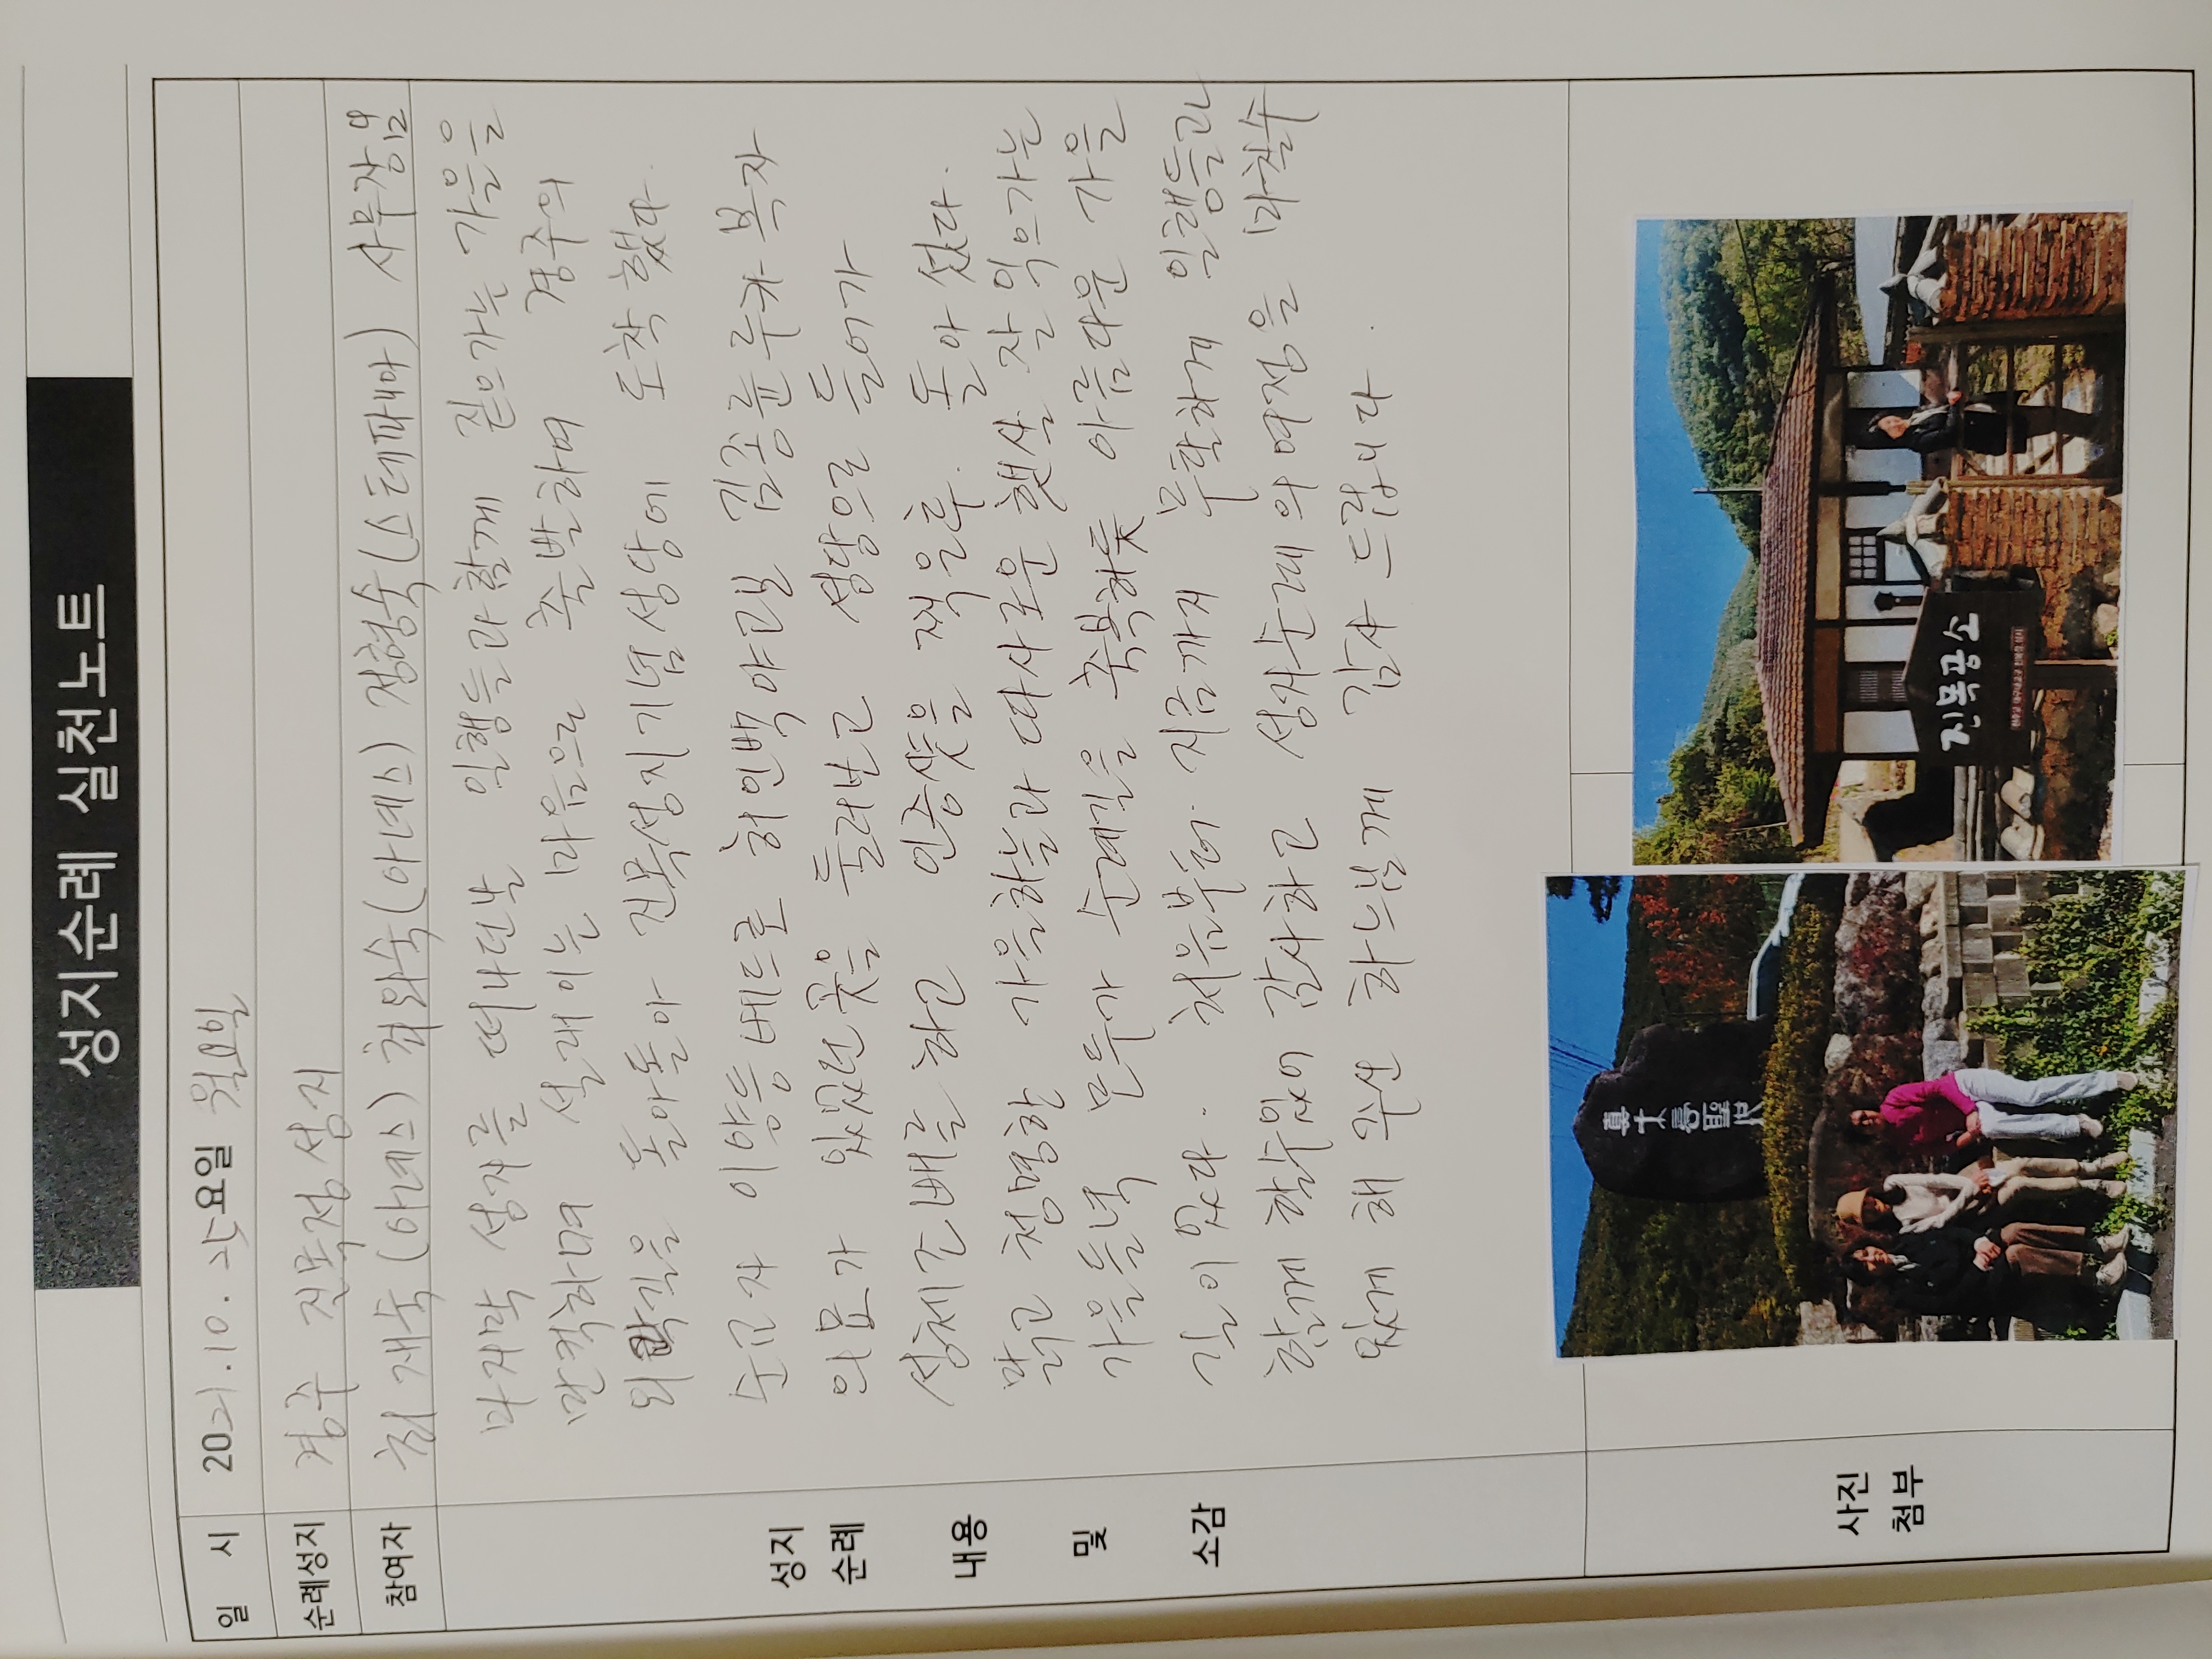 성지순례 실천노트
일 시
2021.10.25요일 월요일
순례성지
경주 진목정성지
참여자
허재숙(아녜스) 최와숙(아녜스) 정형숙(스테파니아) 사무장님
성지
순례
내용
및
소감
마지막 성지를 떠나던날 일행들과함께 짙으가는 가을을
만컥하며 설래이는 마음으로 출발하여 경주의
외곽길을 돌아돌아 진목성지기념성당에 도착했다.
순교자 이양등베드로 허인백야고보 김종륜루카 복자
의묘가 있었던곳을 둘러보고 성당으로 들어가
성체조배를 하고 인증샷을 찍은후. 돌아 섰다.
맑고 청명한 가을하늘과 따사로운 햇살 잘 익으가는
가을들녘 모두가 순례길을 축복하듯 아름다운 가을
길이었다. 처음부터 지금까지 무탈하게 일행들과
함께 할수있어 감사하고 성지순례의여정을 마칠수
있게 해 주신 하느님께 감사 드립니다.
사진
첨부
眞木亭聖地
진목공소
천주교 대구대교구 진목정 성지